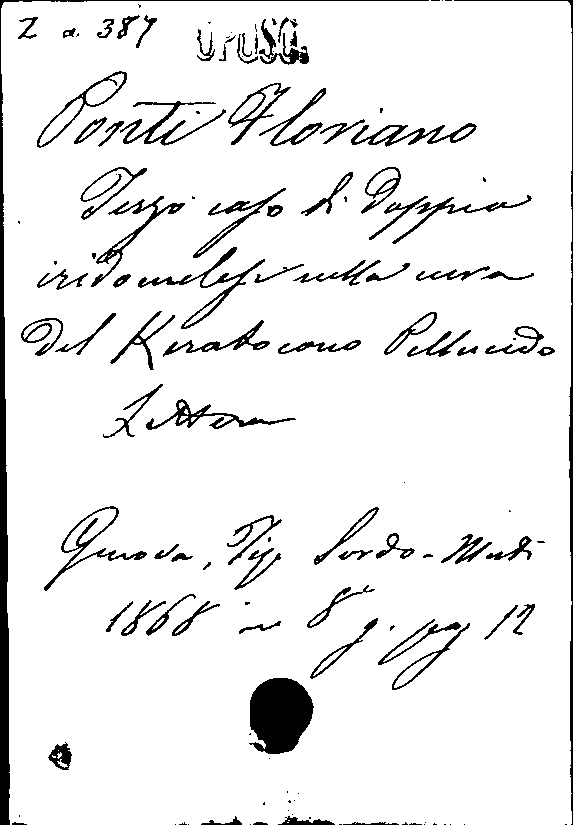 Z a. 387 OPUSC.
Ponti Floriano
Terzo caso di Doppia
iridomelesi nella cura
Del Keratocono Pellucido
Lettera
Genova, Tip. Sordo-Muti
1868 in 8° g. pag 12